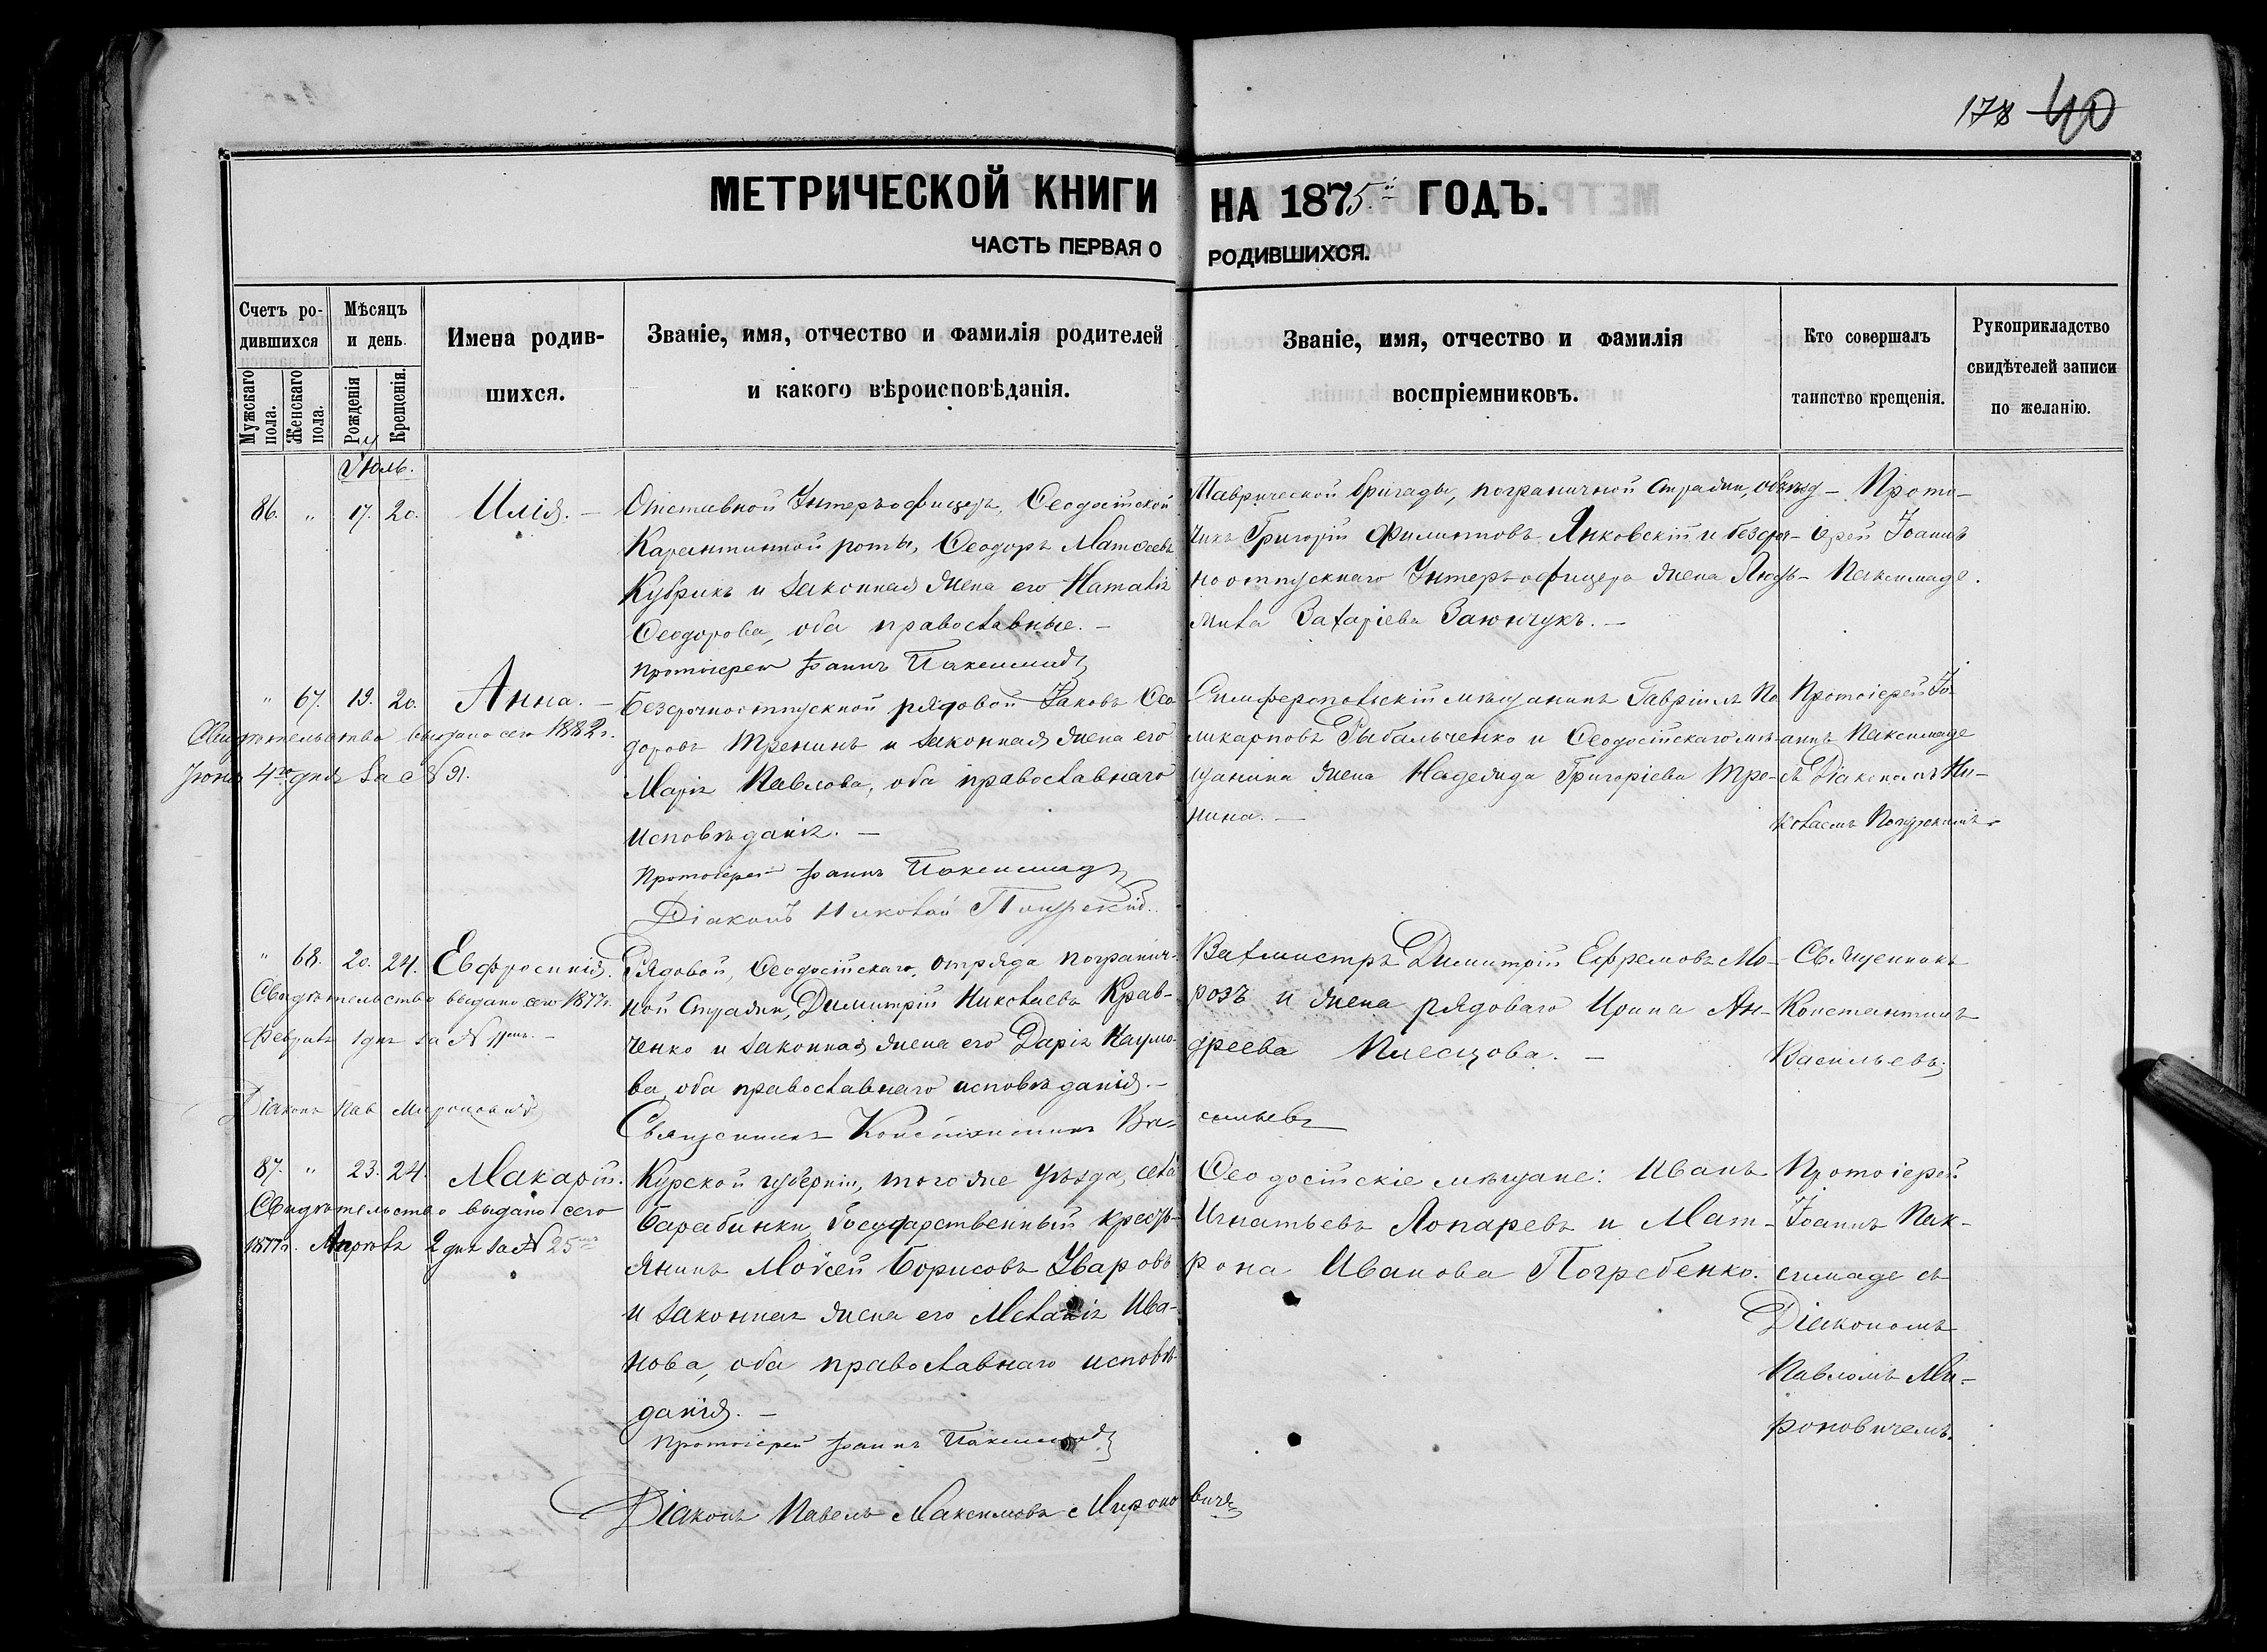 178 40
МЕТРИЧЕСКОЙ КНИГИ НА 1875й ГОДЪ.
ЧАСТЬ ПЕРВАЯ О РОДИВШИХСЯ.
Счетъ родившихся
Мужскаго пола.
Женскаго пола.
Мѣсяцъ и день.
Рожденія
Крещенія.
Имена родив-
шихся.
Званіе, имя, отчество и фамилія родителей
и какого вѣроисповѣданія.
Званіе, имя, отчество и фамилія
воспріемниковъ.
Кто совершалъ
таинство крещенія.
Рукоприкладство
свидѣтелей записи
по желанію.
Іюль.
86. " 17. 20. Илія. –
Отставной Унтеръ-офицеръ, Ѳеодосійской
Карантинной роты, Ѳеодоръ Матѳеевъ
Кубрикъ и законная жена его Наталія
Ѳеодорова, оба православные. –
Протоіерей Іоаннъ Паксимадъ
Таврической бригады, пограничной стражи, объѣзд-
чикъ Григорій Филиповъ Янковскій и безсроч-
ноотпускнаго Унтеръ-офицера жена Люд-
мила Захаріева Заюнчукъ. –
Прото-
іерей Іоаннъ
Паксимаде.
" 67. 19. 20. Анна. –
Свидѣтельство выдано сего 1882 г.
Іюня 4го дня за № 91.
Безсрочноотпускной рядовой Іаковъ Ѳео-
доровъ Тренинъ и законная жена его
Марія Павлова, оба православнаго
исповѣданія. –
Протоіерей Іоаннъ Паксимадъ
Діаконъ Николай
Симферопольскій мѣщанинъ Гавріилъ По-
ликарповъ Рыбальченко и Ѳеодосійскаго мѣ-
щанина жена Надежда Григоріева Тре-
нина. –
Протоіерей Іо-
аннъ Паксимаде
съ Діакономъ Ни-
колаемъ
" 68. 20. 24. Евфросинія.
Свидѣтельство выдано сего 1877 г.
Февраля 1 дня за № 11мъ. –
Діаконъ Пав. Мироновичъ
Рядовой, Ѳеодосійскаго, отряда погранич-
ной стражи, Димитрій Николаевъ Крав-
ченко и законная жена его Дарія Наумо-
ва, оба православнаго исповѣданія. –
Священникъ Константинъ Ва-
сильевъ
Вахмистръ Димитрій Ефремовъ Мо-
розъ и жена рядоваго Ирина Ан-
дреева Плесцова. –
Священникъ
Константинъ
Васильевъ.
87. " 23. 24. Макарій.
Свидѣтельство выдано сего
1877 г. Апрѣля 2 дня за № 25
Курской губерніи, того же уѣзда, села
Барабинки, Государственный кресть-
янинъ Мойсей Борисовъ Уваровъ
и законная жена его Меланія Ива-
нова, оба православнаго исповѣ-
данія. –
Протоіерей Іоаннъ Паксимадъ
Діаконъ Павелъ Максимовъ Мироновичъ
Ѳеодосійскіе мѣщане: Иванъ
Игнатьевъ Лопаревъ и Мат-
рона Иванова Погребенко.
Протоіерей
Іоаннъ Пак-
симаде съ
Діакономъ
Павломъ Ми-
роновичемъ.